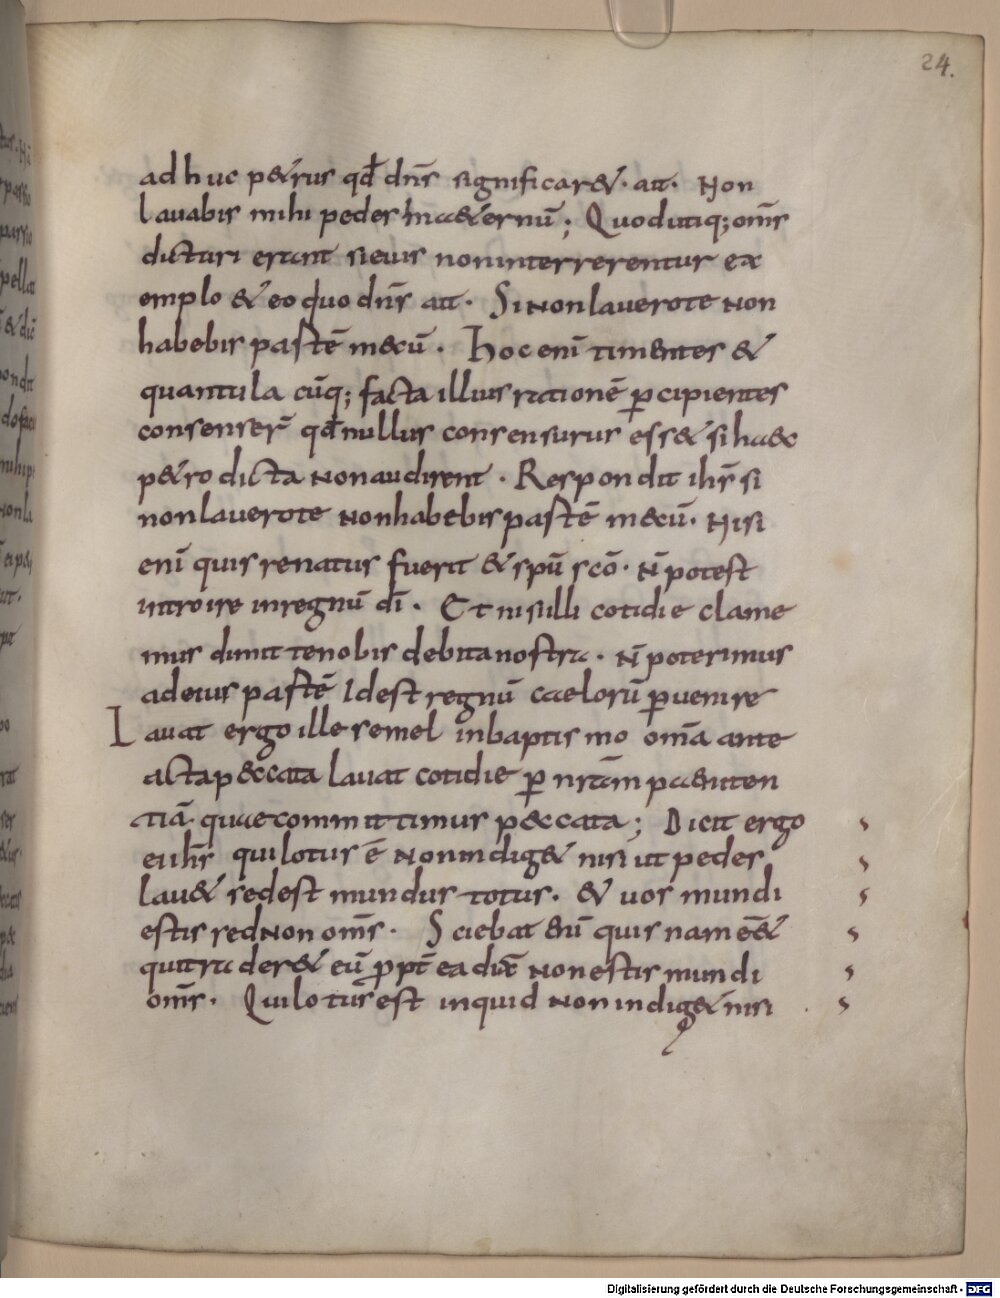 24.
adhuc p&rus qđ dn̄s significar&· ait· Non
lauabis mihi pedes in a&ernū; Quod utiq; om̄s
dicturi erant si eius non interrerentur ex
emplo & eo quo dn̄s ait· Si non lauero te non
habebis partē mecū· Hoc enī timentes &
quantula cūq; facta illius rationē p̱cipientes
consenser̄ qđ nullus consensurus ess& si haec
p&ro dicta non audirent· Respondit ihs̄ si
non lauero te non habebis partē mecū· Nisi
enī quis renatus fuerit & spū scō· n̄ potest
introire in regnū dī· Et nisi illi cotidie clame
mus dimitte nobis debita nostra· n̄ poterimus
ad eius partē idest regnū caelorū p̱uenire
Lauat ergo ille semel in baptismo om̄a ante
acta peccata lauat cotidie p̱ nr̄am paeniten
tiā· quae committimus peccata; Dicit ergo
ei ihs̄ qui lotus ē non indig& nisi ut pedes
lau& sed est mundus totus· & uos mundi
estis sed non om̄s· Sciebat enī quis nam ēē&
qui trader& eū p̱pt̄ ea dix̄ non estis mundi
om̄s· Qui lotus est inquid non indig& nisi
Digitalisierung gefördert durch die Deutsche Forschungsgemeinschaft - DFG